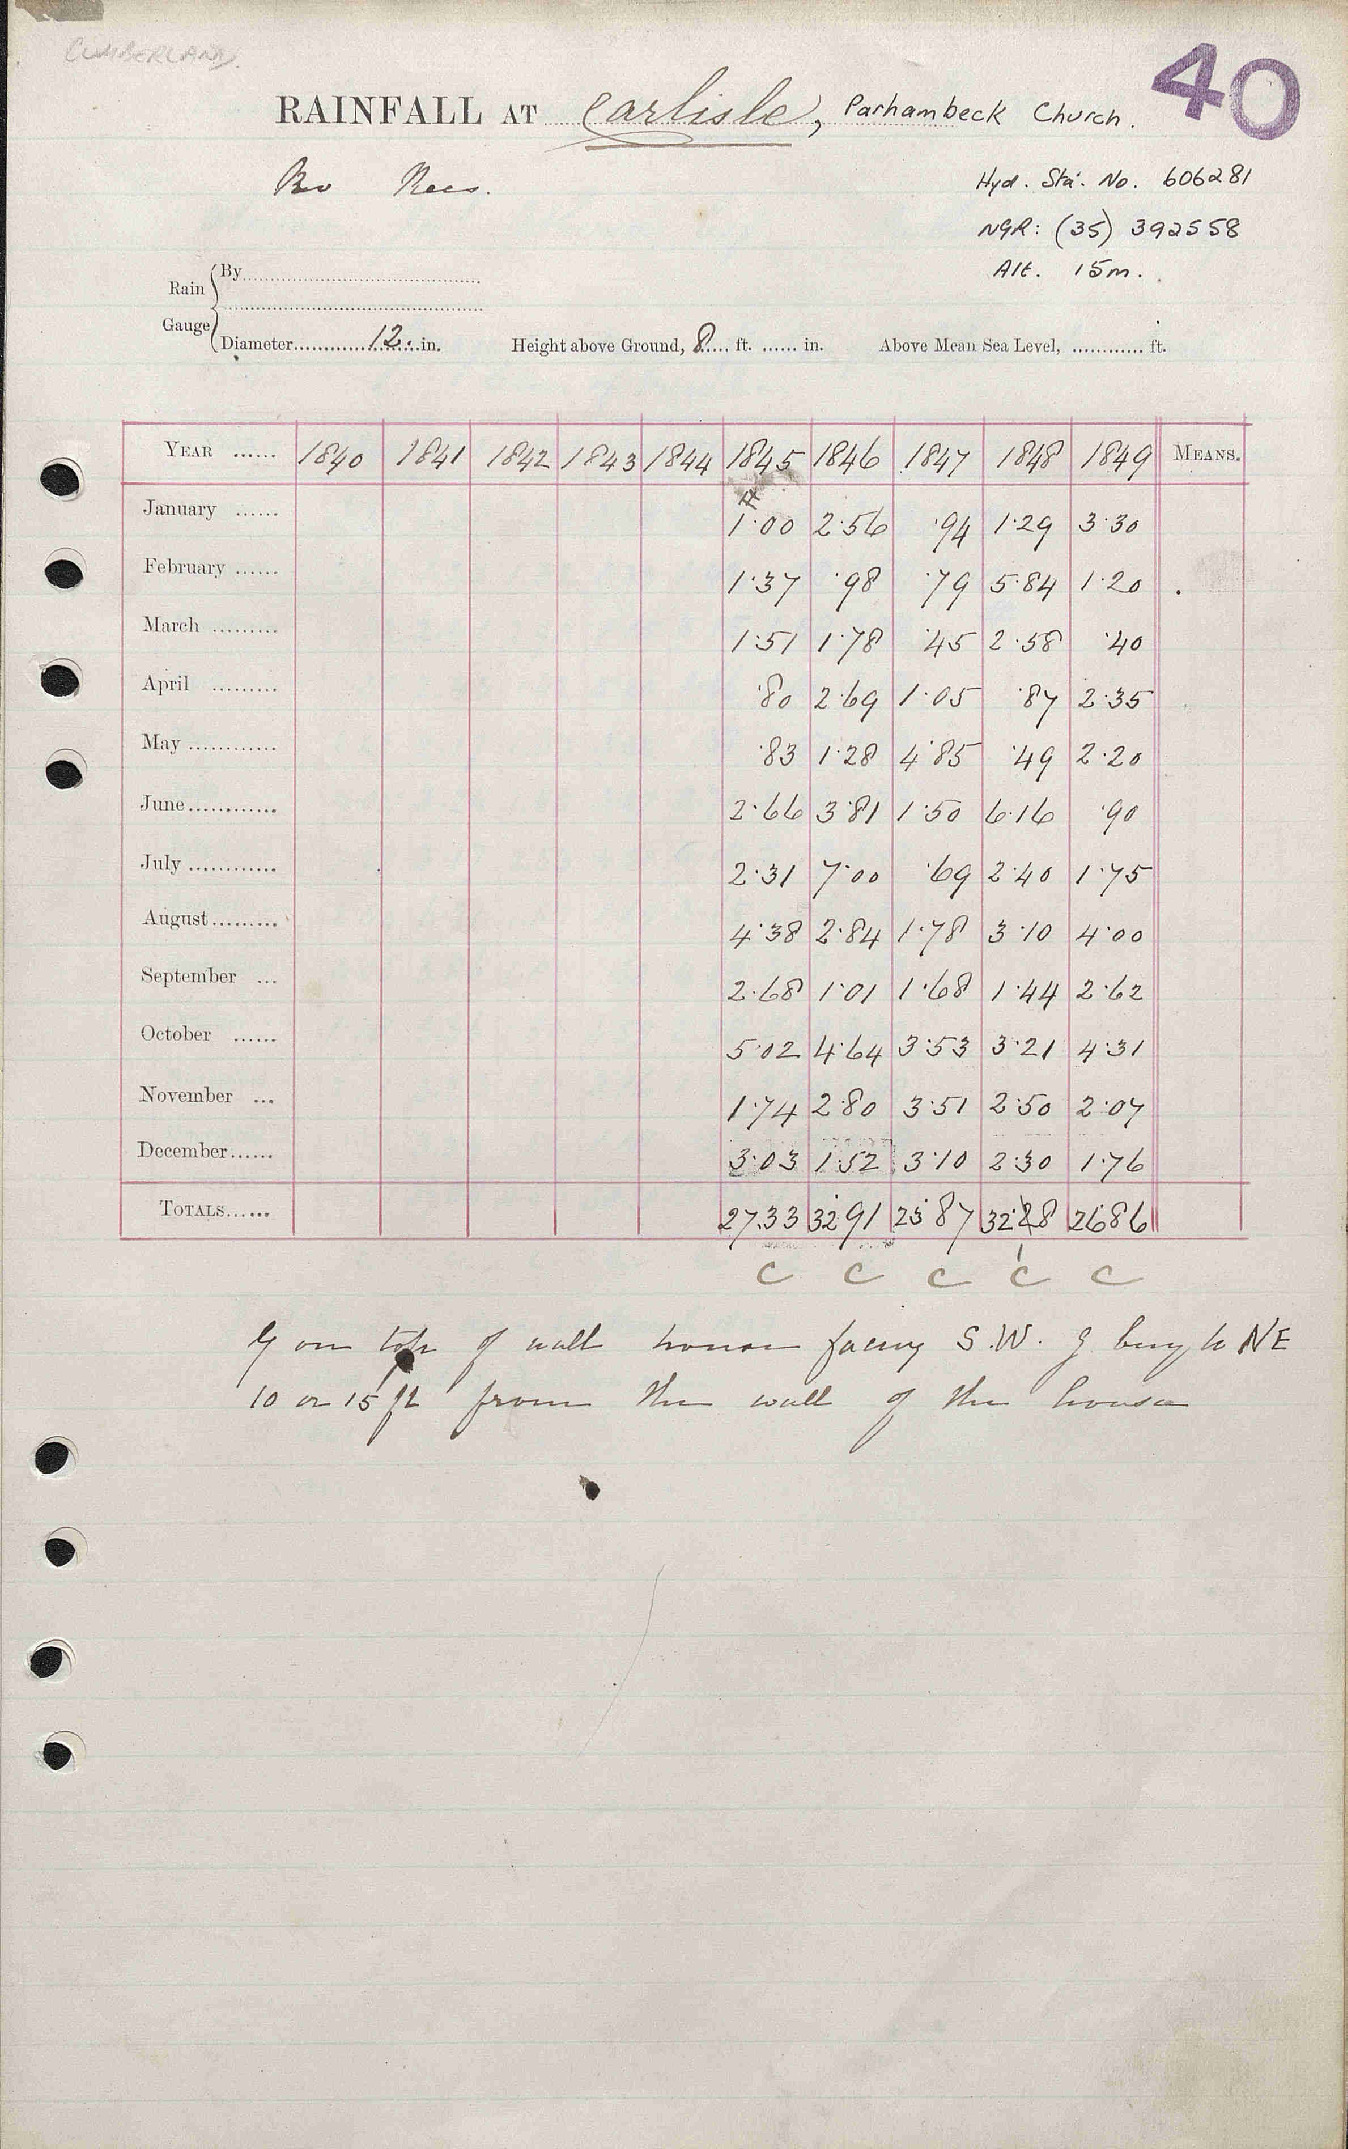 CUMBERLAND.
40
RAINFALL AT Carlisle, Parhambeck Church.
Rev Rees.
Hyd. Sta. No. 606281
NGR: (35) 392558
Alt. 15m.
Rain Gauge
By
Diameter 12. in. Height above Ground, 8 ft. in. Above Mean Sea Level, ft.
YEAR 1840 1841 1842 1843 1844 1845 1846 1847 1848 1849 MEANS.
January 1·00 2·56 ·94 1·29 3·30
February 1·37 ·98 ·79 5·84 1·20
March 1·51 1·78 ·45 2·58 ·40
April ·80 2·69 1·05 ·87 2·35
May ·83 1·28 4·85 ·49 2·20
June 2·66 3·81 1·50 6·16 ·90
July 2·31 7·00 ·69 2·40 1·75
August 4·38 2·84 1·78 3·10 4·00
September 2·68 1·01 1·68 1·44 2·62
October 5·02 4·64 3·53 3·21 4·31
November 1·74 2·80 3·51 2·50 2·07
December 3·03 1·52 3·10 2·30 1·76
TOTALS 27.33 32·91 23·87 32· 8 26·86
C C C C C
G on top of wall house facing S.W. g being to NE
10 or 15 ft from the wall of the house